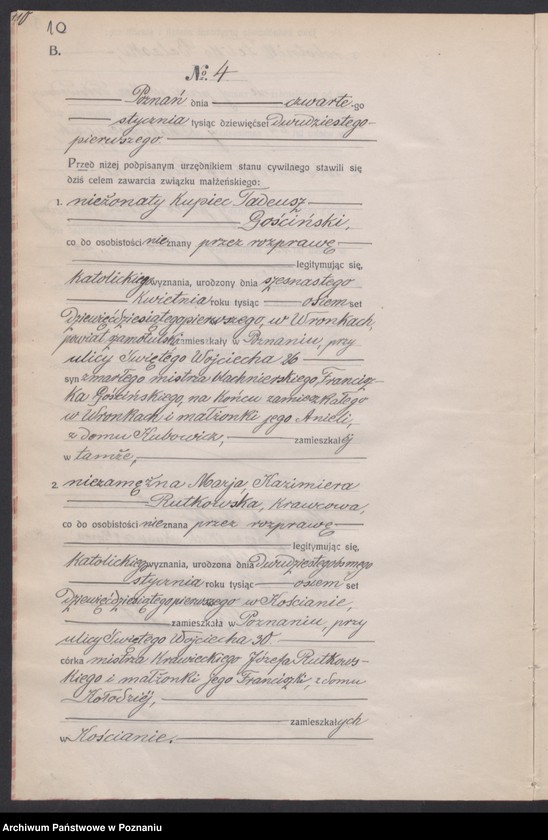 10
B.
No. 4
Poznań dnia czwarte-go
stycznia tysiąc dziewięćset dwudziestego
pierwszego.
Przed niżej podpisanym urzędnikiem stanu cywilnego stawili się
dziś celem zawarcia związku małżeńskiego:
1. nieżonaty kupiec Tadeusz
Gościński,
co do osobistości nieznany przez rozprawę
legitymując się,
katolickiego wyznania, urodzony dnia szesnastego
kwietnia roku tysiąc osiemset
dziewięćdziesiątego pierwszego, w Wronkach,
powiat szamotulski zamieszkały w Poznaniu, przy
ulicy Świętego Wojciecha 26
syn zmarłego mistrza blachnierskiego Francisz-
ka Gościńskiego, na końcu zamieszkałego
w Wronkach i małżonki jego Anieli,
z domu Kubowicz, zamieszkałej
w tamże,
2. niezamężna Marja, Kazimiera
Rutkowska, krawcowa,
co do osobistości nieznana przez rozprawę
legitymując się,
katolickiego wyznania, urodzona dnia dwudziestego ósmego
stycznia roku tysiąc osiemset
dziewięćdziesiątego pierwszego w Kościanie,
zamieszkała w Poznaniu, przy
ulicy Świętego Wojciecha 30
córka mistrza krawieckiego Józefa Rutkows-
kiego i małżonki jego Franciszki, z domu
Kołodziej,
zamieszkałych
w Kościanie.
Archiwum Państwowe w Poznaniu